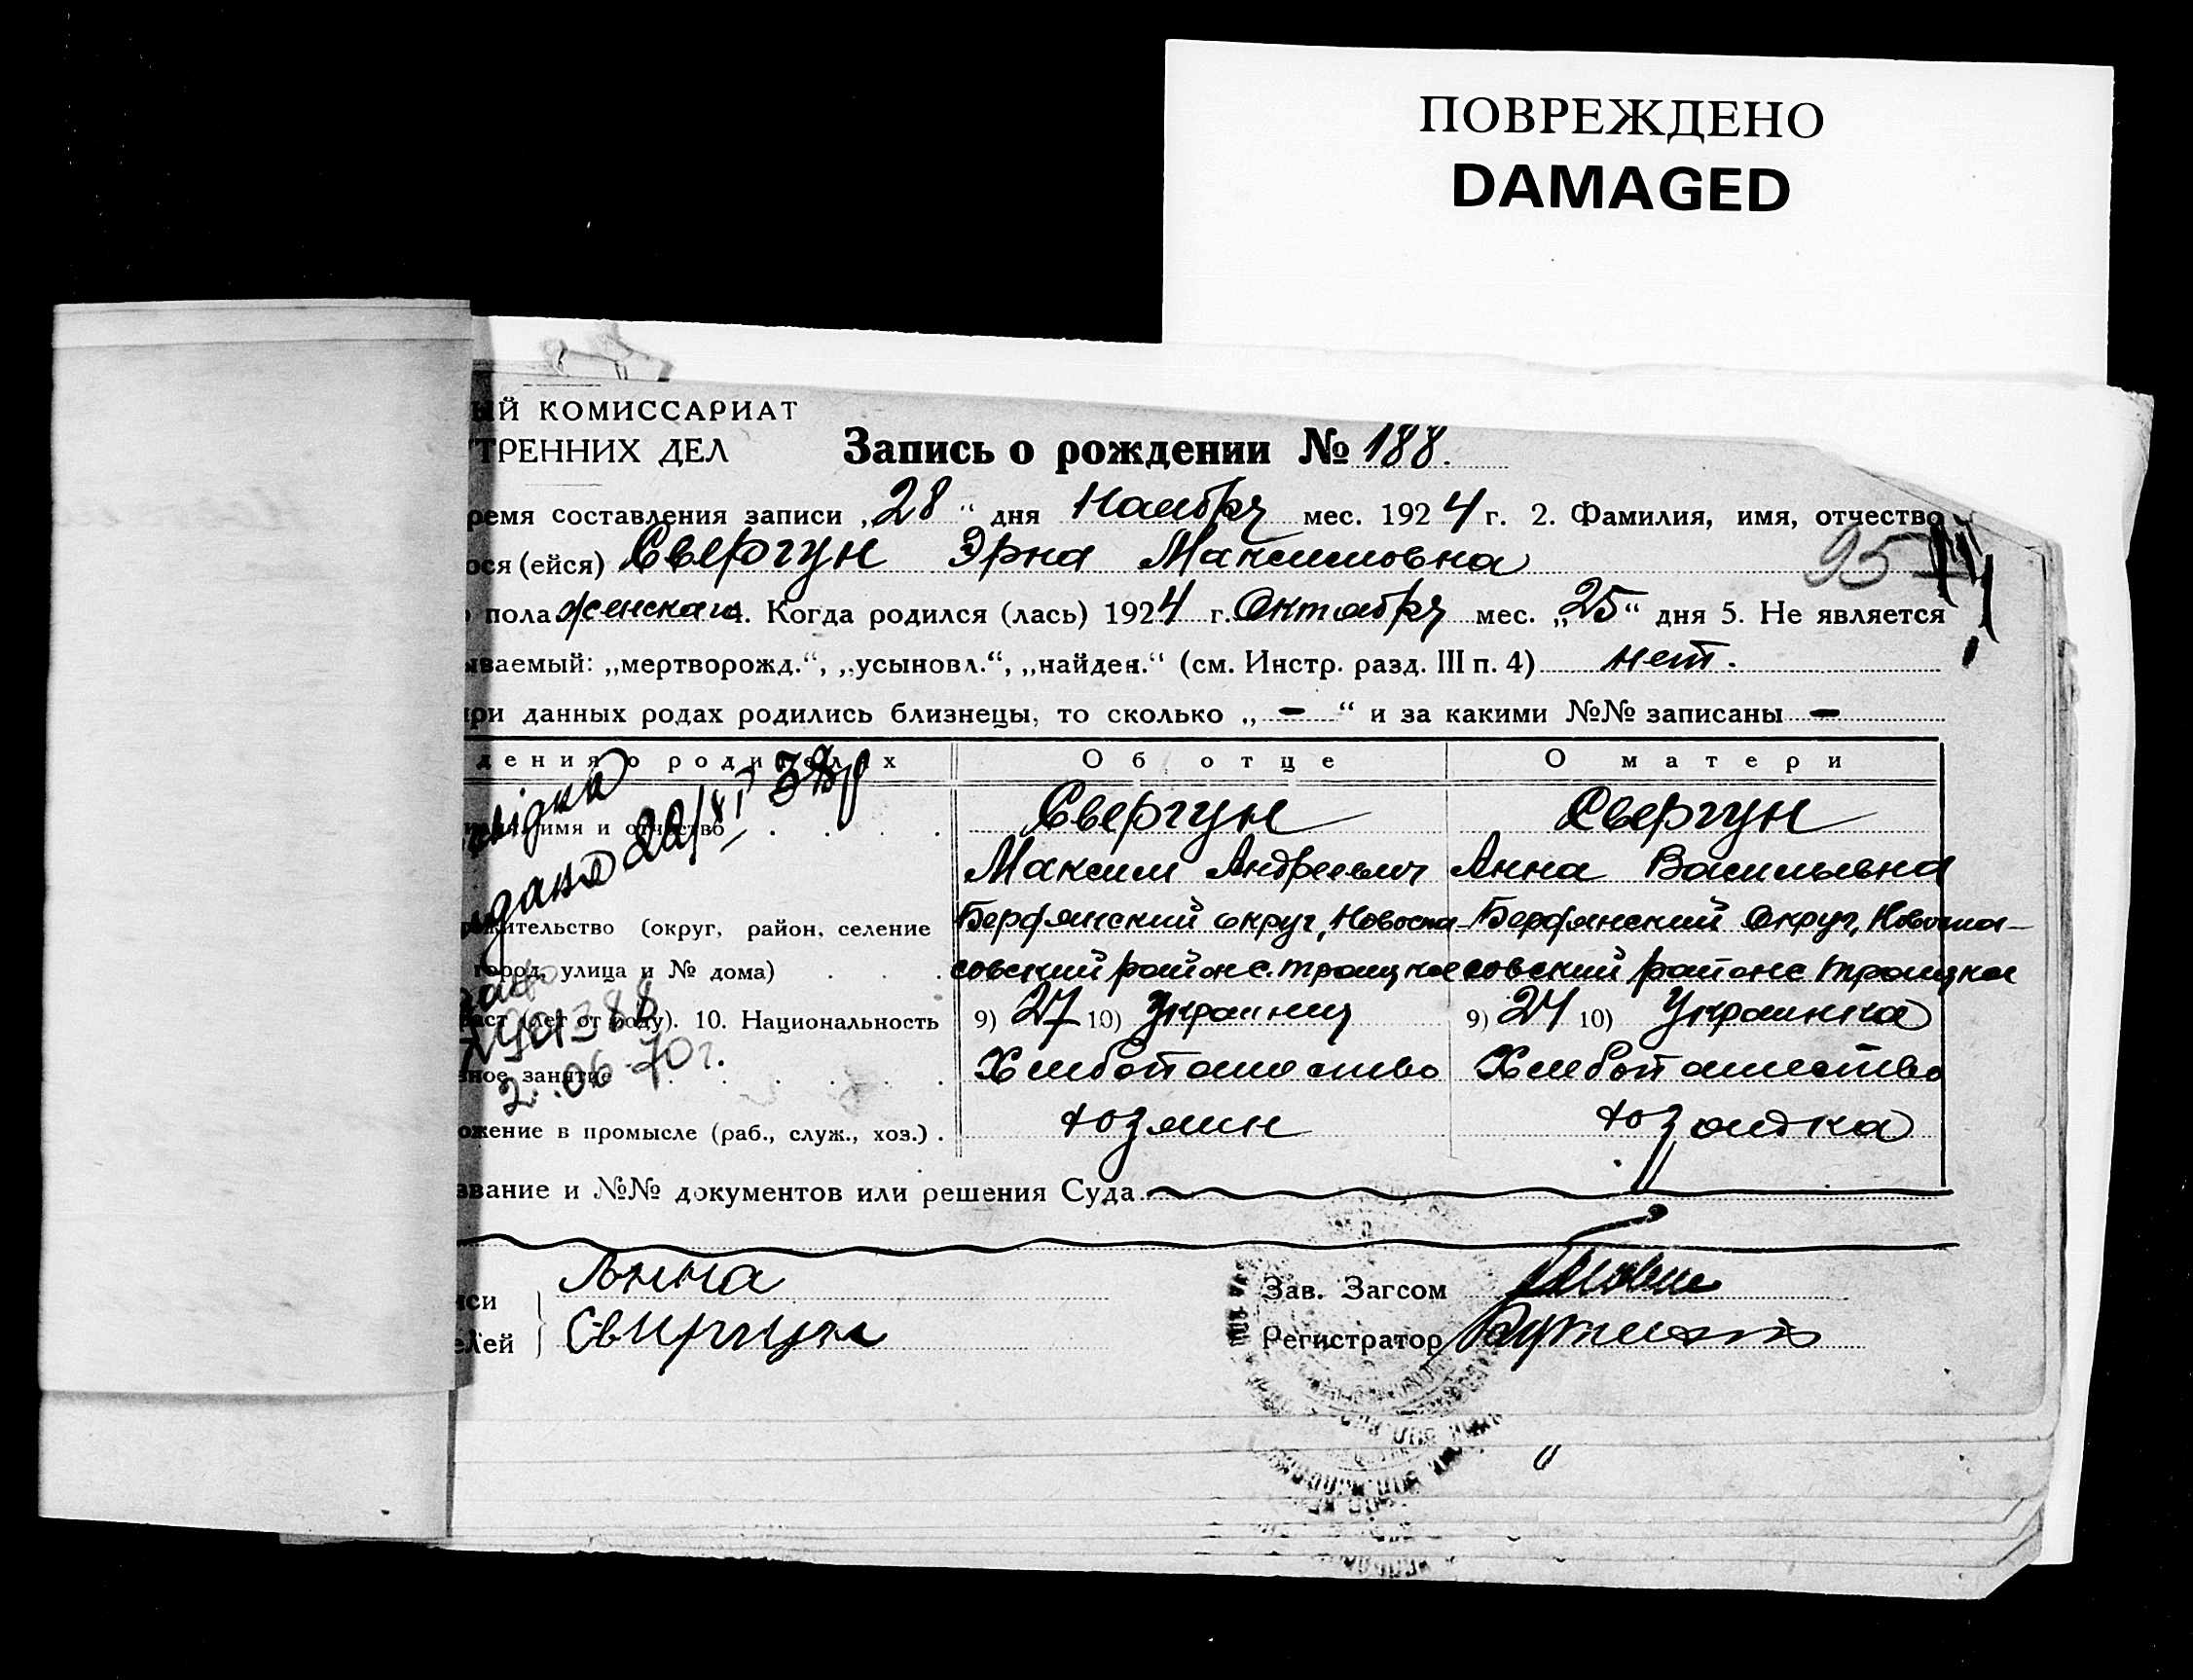 ПОВРЕЖДЕНО
DAMAGED
ЫЙ КОМИССАРИАТ
ТРЕННИХ ДЕЛ
Запись о рождении № 188.
ремя составления записи „28“ дня Ноября мес. 1924 г. 2. Фамилия, имя, отчество
ося (ейся) Свергун Эрна Максимовна
95
пола женская 4. Когда родился (лась) 1924 г. Октября мес. „25“ дня 5. Не является
ываемый: „мертворожд.“, „усыновл.“, „найден.“ (см. Инстр. разд. III п. 4) нет.
при данных родах родились близнецы, то сколько „ — “ и за какими №№ записаны —
дения о родителях Об отце О матери
имя и отчество Свергун Свергун
Максим Андреевич Анна Васильевна
жительство (округ, район, селение Бердянский округ, Новоспа- Бердянский округ, Новоспа-
город, улица и № дома) совский район с. Троицкое совский район с. Троицкое
раст (лет от роду). 10. Национальность 9) 27 10) Украинец 9) 24 10) Украинка
вное занятие Хлебопашество Хлебопашество
ожение в промысле (раб., служ., хоз.) хозяин хозяйка
видана 22/XI 38р
2.06.70г.
звание и №№ документов или решения Суда
иси Анна
елей Свиргун
Зав. Загсом
Регистратор